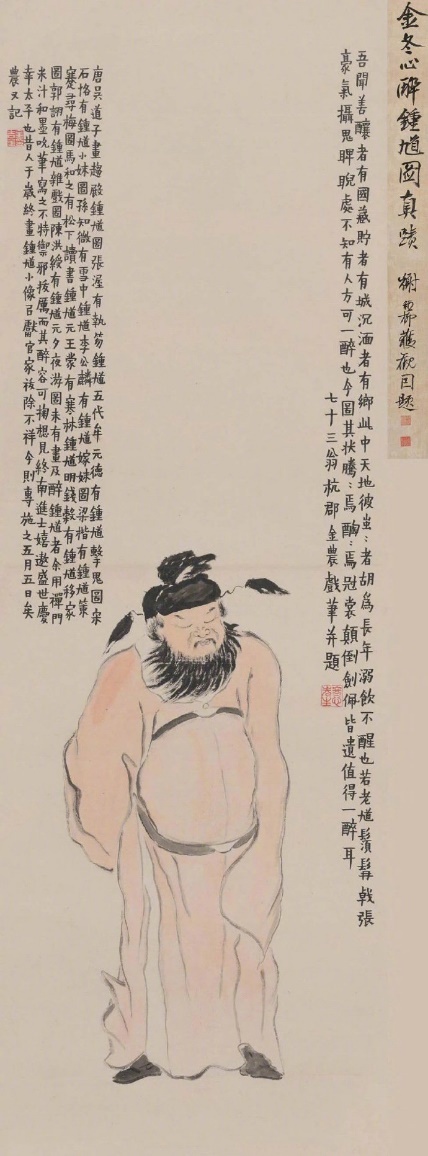 金冬心醉鍾馗圖真蹟
吾聞善釀者有國藏貯者有城沉湎者有鄉此中天地彼蚩:者胡為長年溺飲不醒也若老馗鬚髯戟張
豪氣攝鬼睥睨處不知有人方可一醉也今圖其狀騰:焉醄:焉冠裳顛倒劍佩皆遺值得一醉耳
七十三翁杭郡金農戲筆并題
唐吳道子畫趨殿鍾馗圖張渥有執笏鍾馗五代牟元德有鍾馗擊鬼圖宋
石恪有鍾馗小妹圖孫知微有雪中鍾馗李公麟有鍾馗嫁妹圖梁楷有鍾馗策
蹇尋梅圖馬和之有松下讀書鍾馗元王蒙有寒林鍾馗明錢穀有鍾馗移家
圖郭詡有鍾馗雜戲圖陳洪綬有鍾馗元夕夜游圖未有畫及醉鍾馗者余用禪門
米汁和墨吮筆寫之不特禦邪拔厲而其醉容可掬想見終南進士嬉遨盛世慶
幸太平也昔人于歲終畫鍾馗小像以獻官家祓除不祥今則專施之五月五日矣
農又記